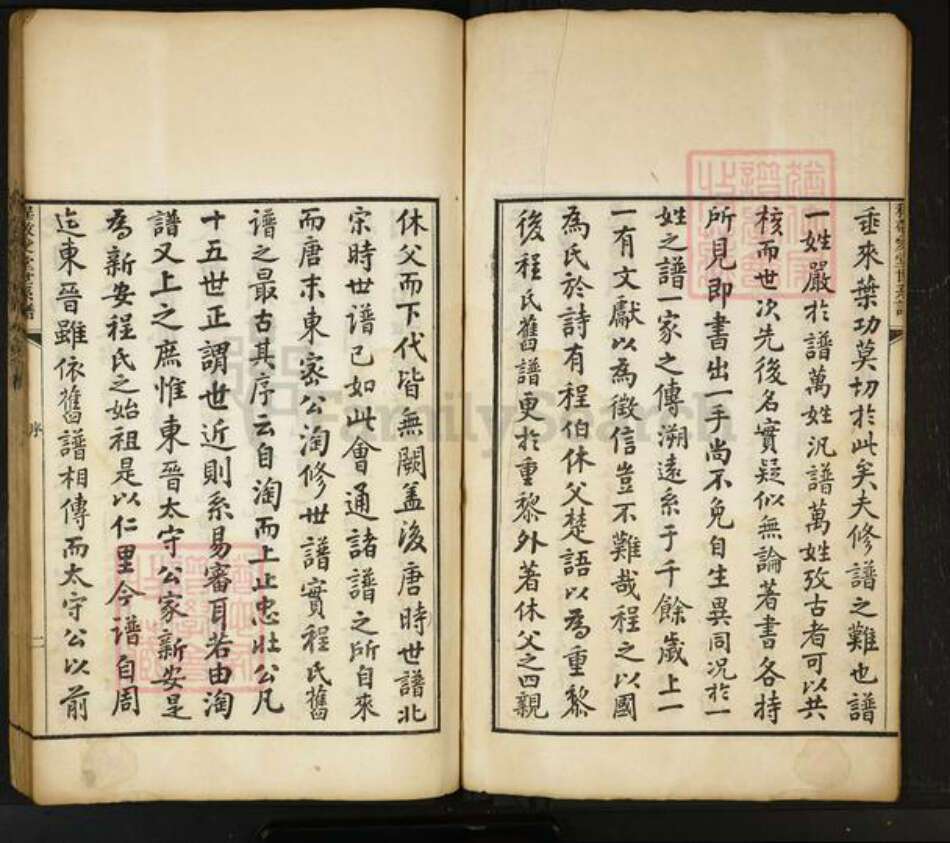 垂來葉功莫切於此矣夫修譜之難也譜
一姓嚴於譜萬姓汎譜萬姓攷古者可以共
核而世次先後名實疑似無論著書各持
所見即書出一手尚不免自生異同况於一
姓之譜一家之傳溯遠系于千餘歲上一
一有文獻以為徵信豈不難哉程之以國
為氏於詩有程伯休父楚語以為重黎
後程氏舊譜更於重黎外著休父之四親
休父而下代皆無闕盖後唐時世譜北
宋時世譜已如此會通諸譜之所自來
而唐末東密公淘修世譜實程氏舊
譜之最古其序云自淘而上止忠壯公凡
十五世正謂世近則系易審耳若由淘
譜又上之庶惟東晉太守公家新安是
為新安程氏之始祖是以仁里今譜自周
迄東晉雖依舊譜相傳而太守公以前
序
二
FamilySearch